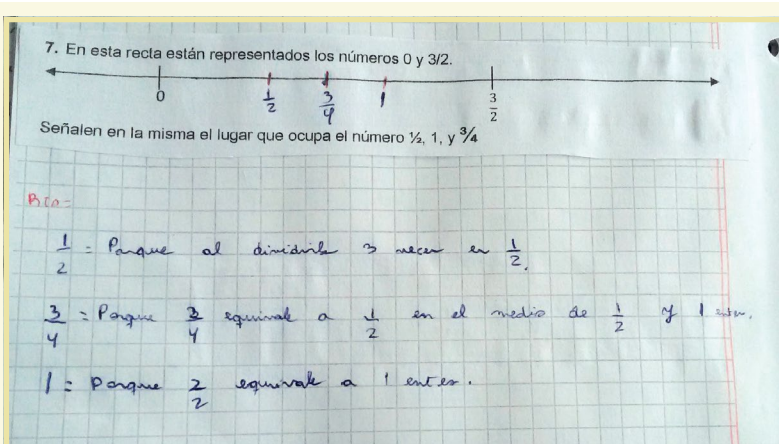 7. En esta recta están representados los números 0 y 3/2.
0 1/2 3/4 1 3/2
Señalen en la misma el lugar que ocupa el número ½, 1, y ¾
Rta=
1/2 = Porque al dividirlo 3 veces es 1/2.
3/4 = Porque 3/4 equivale a 1/2 en el medio de 1/2 y 1 entero.
1 = Porque 2/2 equivale a 1 entero.